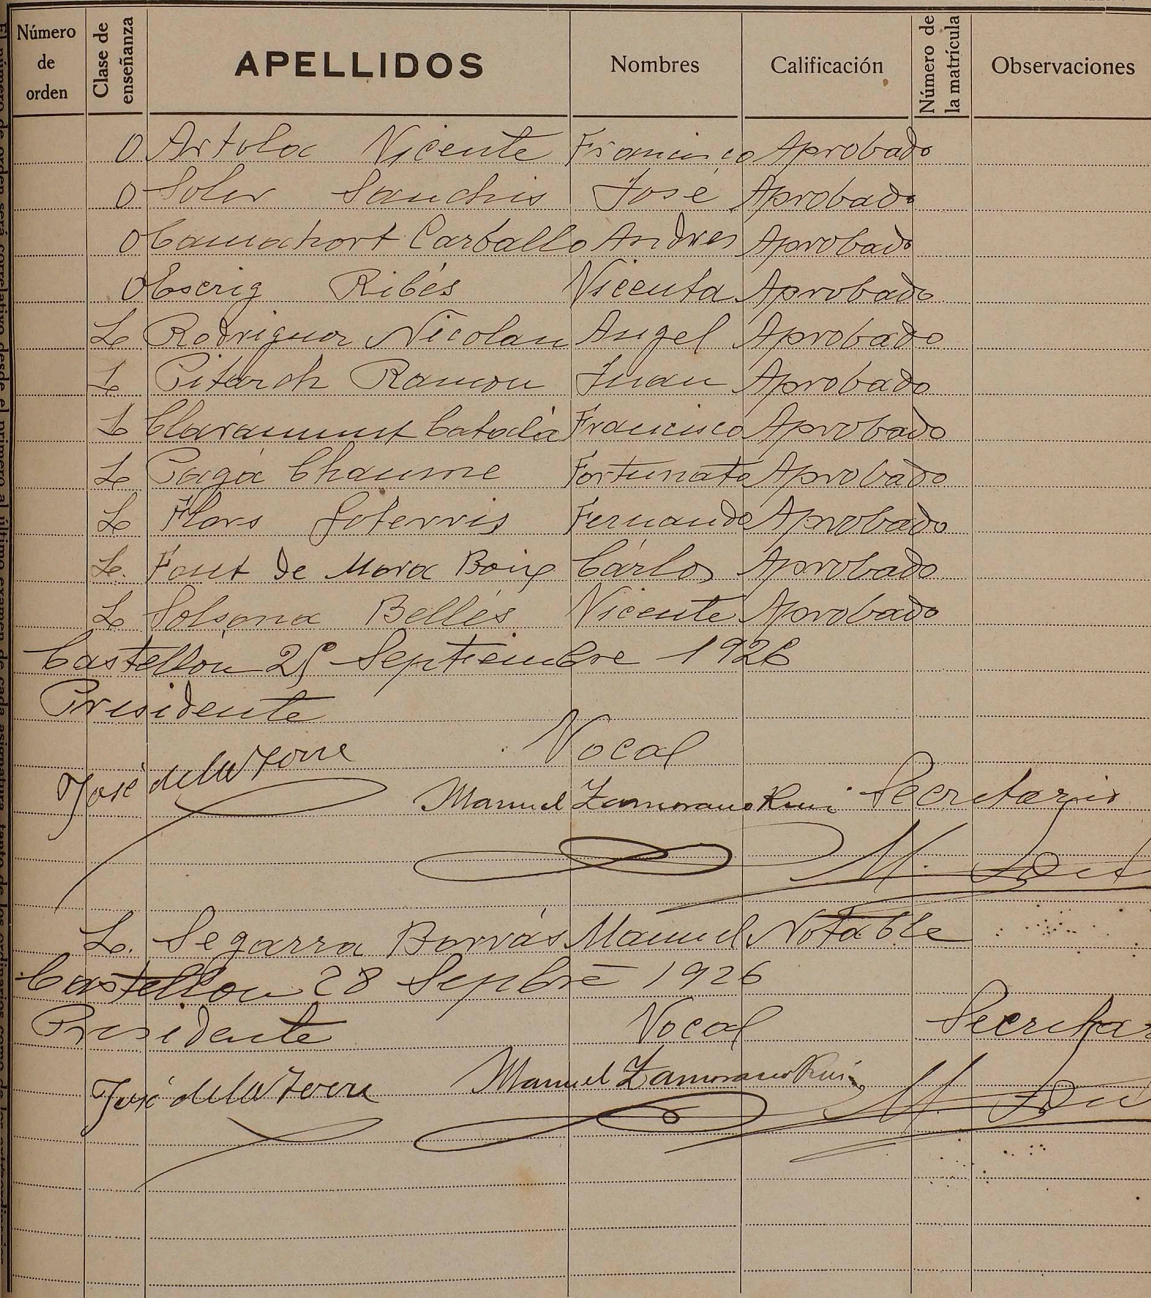 Número de orden Clase de enseñanza APELLIDOS Nombres Calificación Número de la matrícula Observaciones
O Artola Vicente Francisco Aprobado
O Soler Sanchis José Aprobado
O Camachort Carballo Andres Aprobado
O Escrig Ribés Vicenta Aprobado
L Rodriguez Nicolau Angel Aprobado
L Pitarch Ramon Juan Aprobado
L Claramunt Catalá Francisco Aprobado
L Pagá Chaume Fortunato Aprobado
L Flors Soterris Fernando Aprobado
L. Font de Mora Boix Cárlos Aprobado
L Solsona Bellés Vicente Aprobado
Castellon 25 Septiembre 1926
Presidente
Vocal
José de la Torre
Manuel Zamorano Ruiz Secretario
M.
L. Segarra Borrás Manuel Notable
Castellon 28 Sepbre 1926
Presidente Vocal Secretar
José de la Torre Manuel Zamorano Ruiz M.